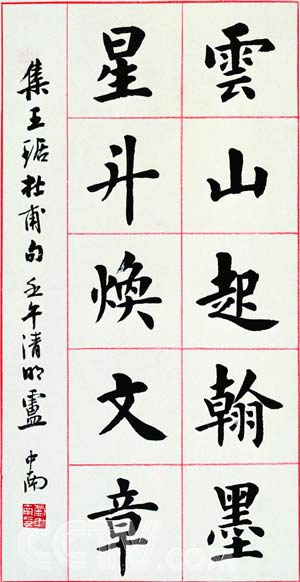 雲山起翰墨
星斗煥文章
集王琚杜甫句壬午清明盧中南